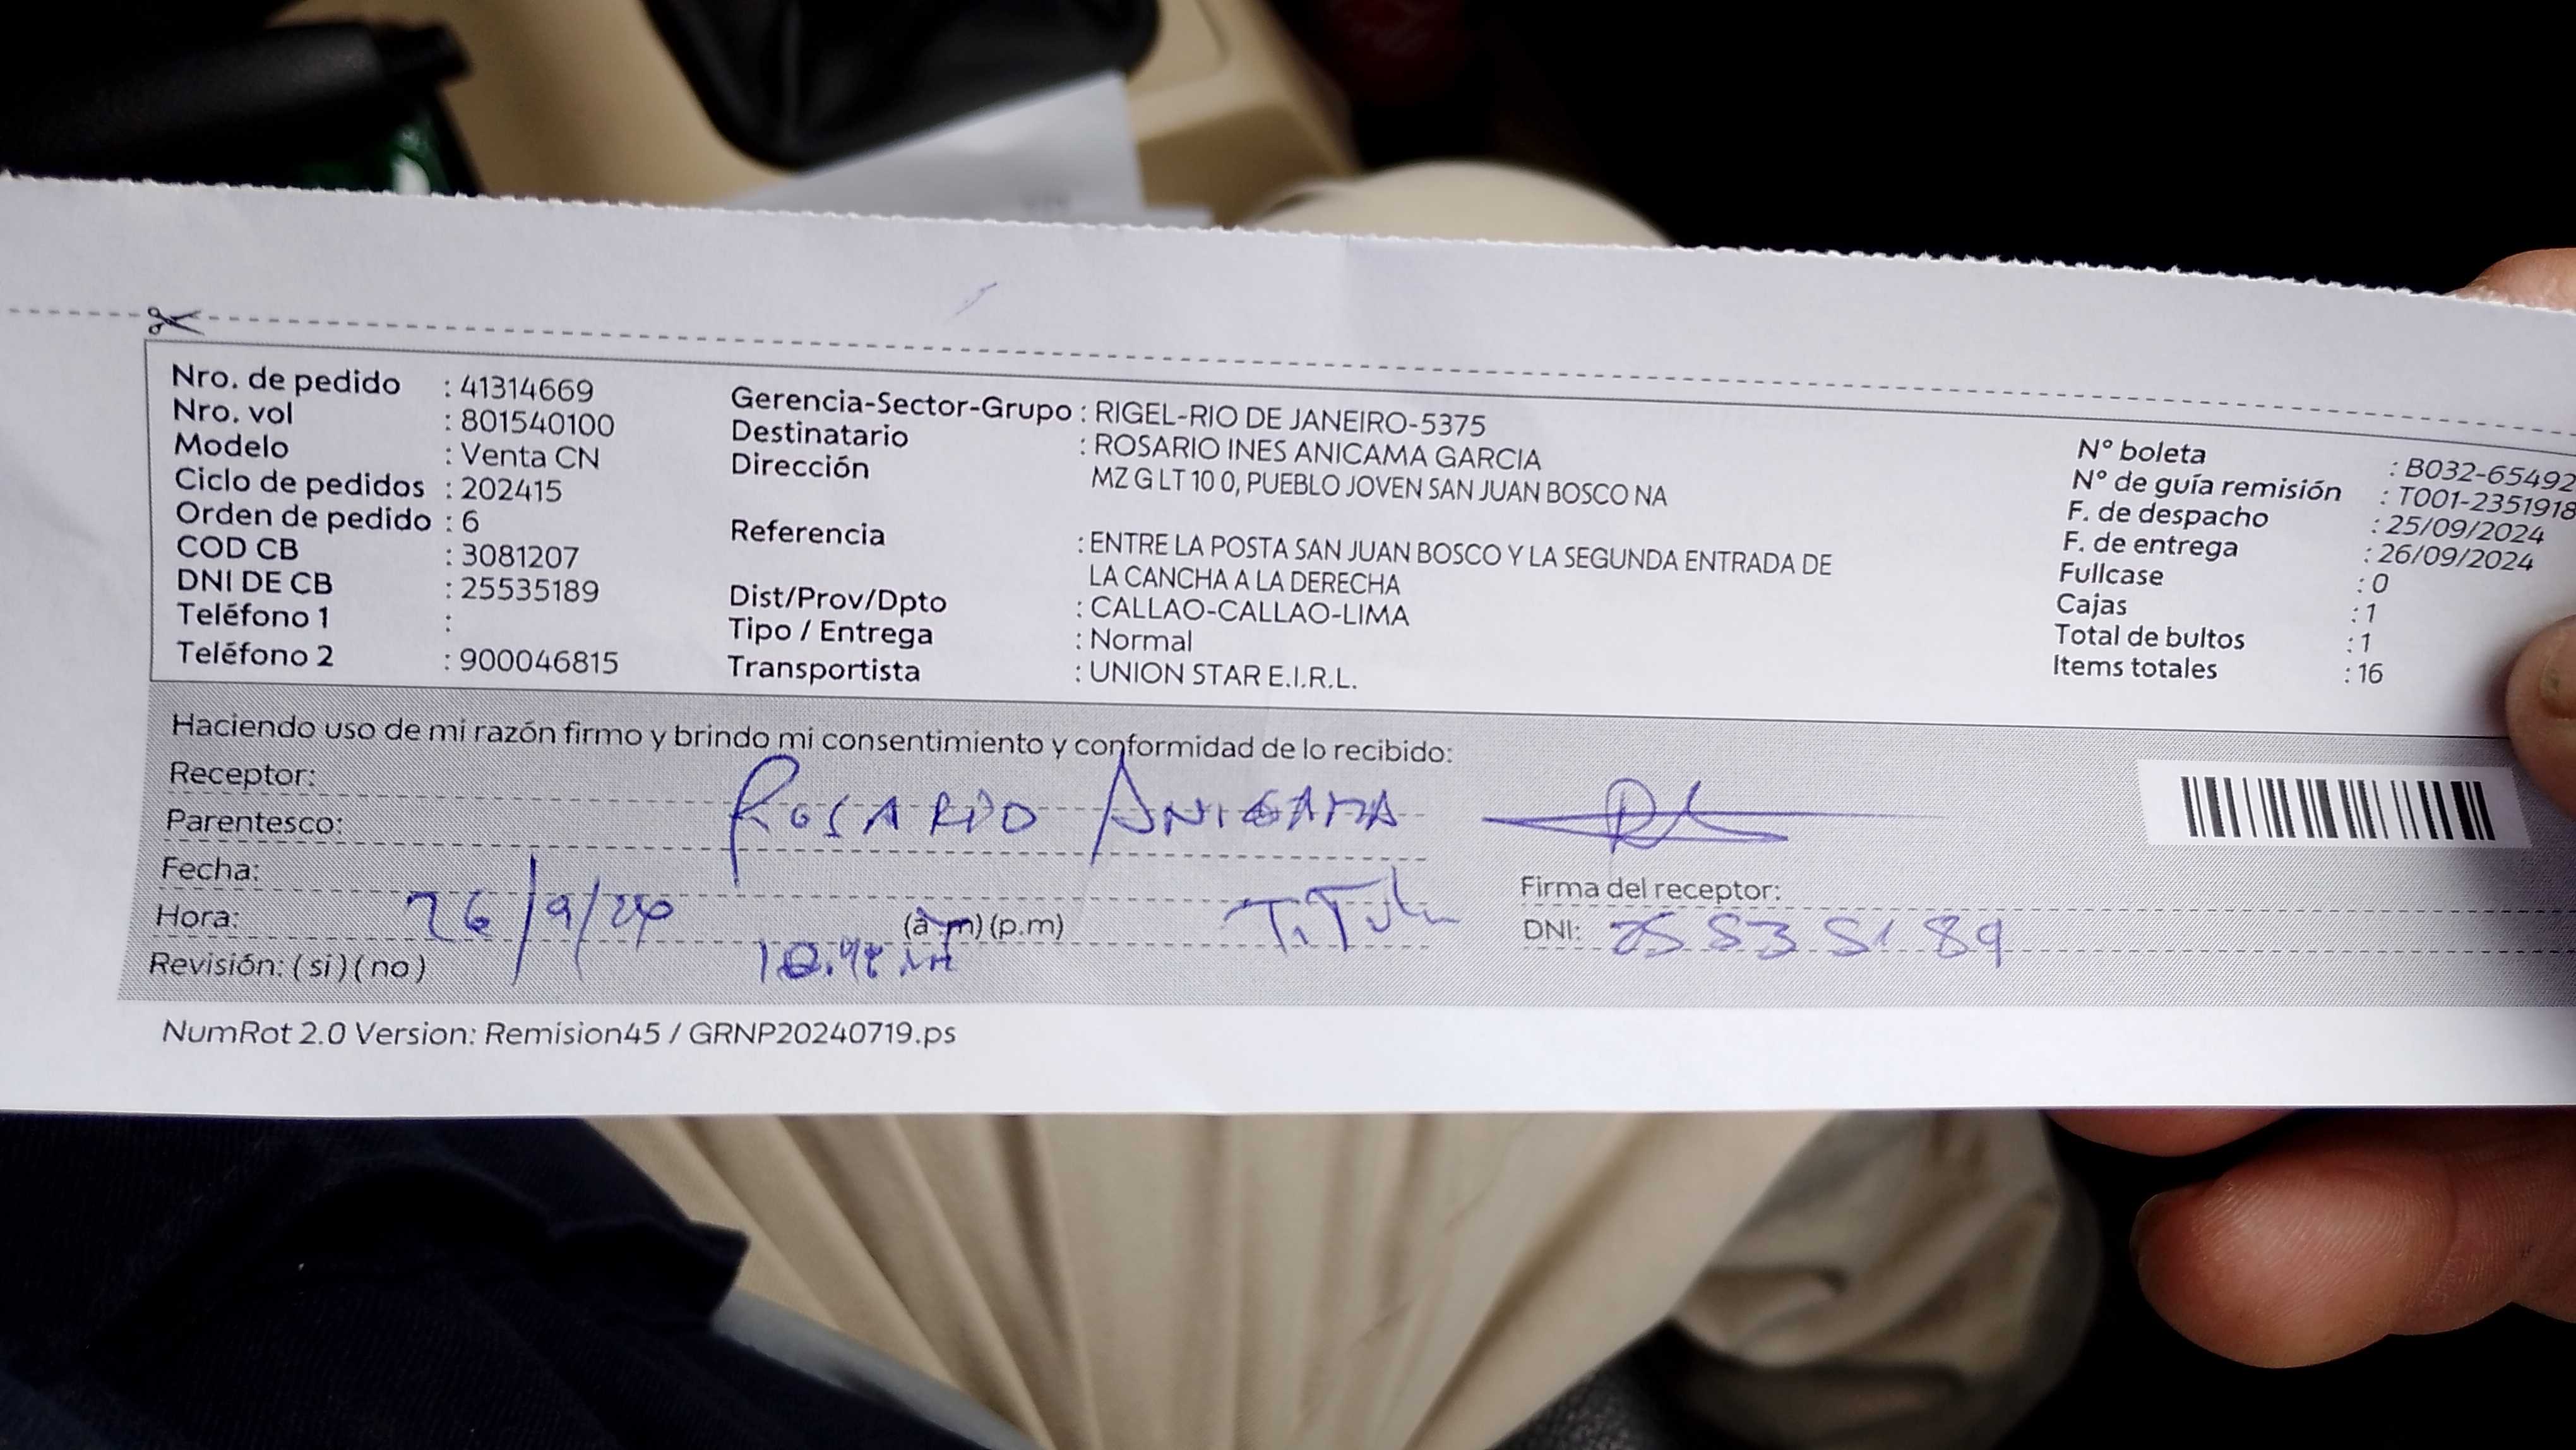 Nro. de pedido : 41314669
Nro. vol : 801540100
Modelo : Venta CN
Ciclo de pedidos : 202415
Orden de pedido : 6
COD CB : 3081207
DNI DE CB : 25535189
Teléfono 1 :
Teléfono 2 : 900046815
Gerencia-Sector-Grupo : RIGEL-RIO DE JANEIRO-5375
Destinatario : ROSARIO INES ANICAMA GARCIA
Dirección MZ G LT 10 0, PUEBLO JOVEN SAN JUAN BOSCO NA
Referencia : ENTRE LA POSTA SAN JUAN BOSCO Y LA SEGUNDA ENTRADA DE
LA CANCHA A LA DERECHA
Dist/Prov/Dpto : CALLAO-CALLAO-LIMA
Tipo / Entrega : Normal
Transportista : UNION STAR E.I.R.L.
N° boleta : B032-65492
N° de guía remisión : T001-2351918
F. de despacho : 25/09/2024
F. de entrega : 26/09/2024
Fullcase : 0
Cajas : 1
Total de bultos : 1
Items totales : 16
Haciendo uso de mi razón firmo y brindo mi consentimiento y conformidad de lo recibido:
Receptor: ROSARIO ANICAMA
Parentesco:
Fecha: 26/9/24
Hora: (a.m) (p.m)
Firma del receptor:
DNI: 25535189
Revisión: ( si ) ( no )
NumRot 2.0 Version: Remision45 / GRNP20240719.ps